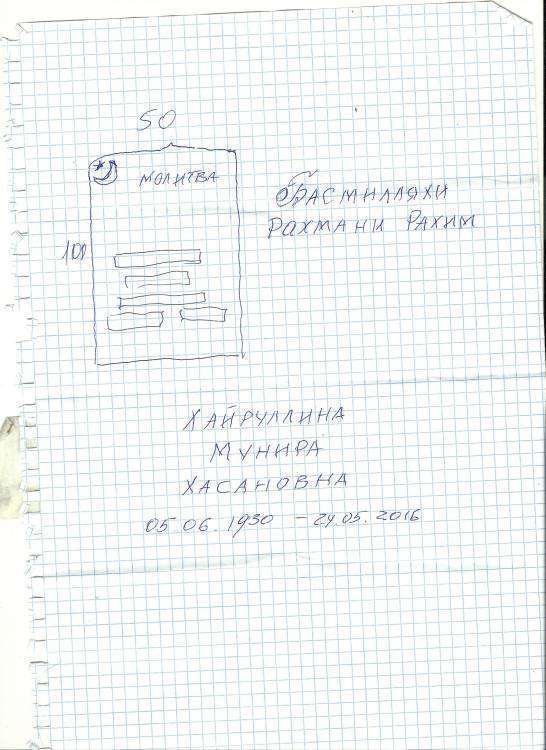 50
МОЛИТВА
100
БАСМИЛЛЯХИ
РАХМАНИ РАХИМ
ХАЙРУЛЛИНА
МУНИРА
ХАСАНОВНА
05 06. 1930 – 24.05.2016